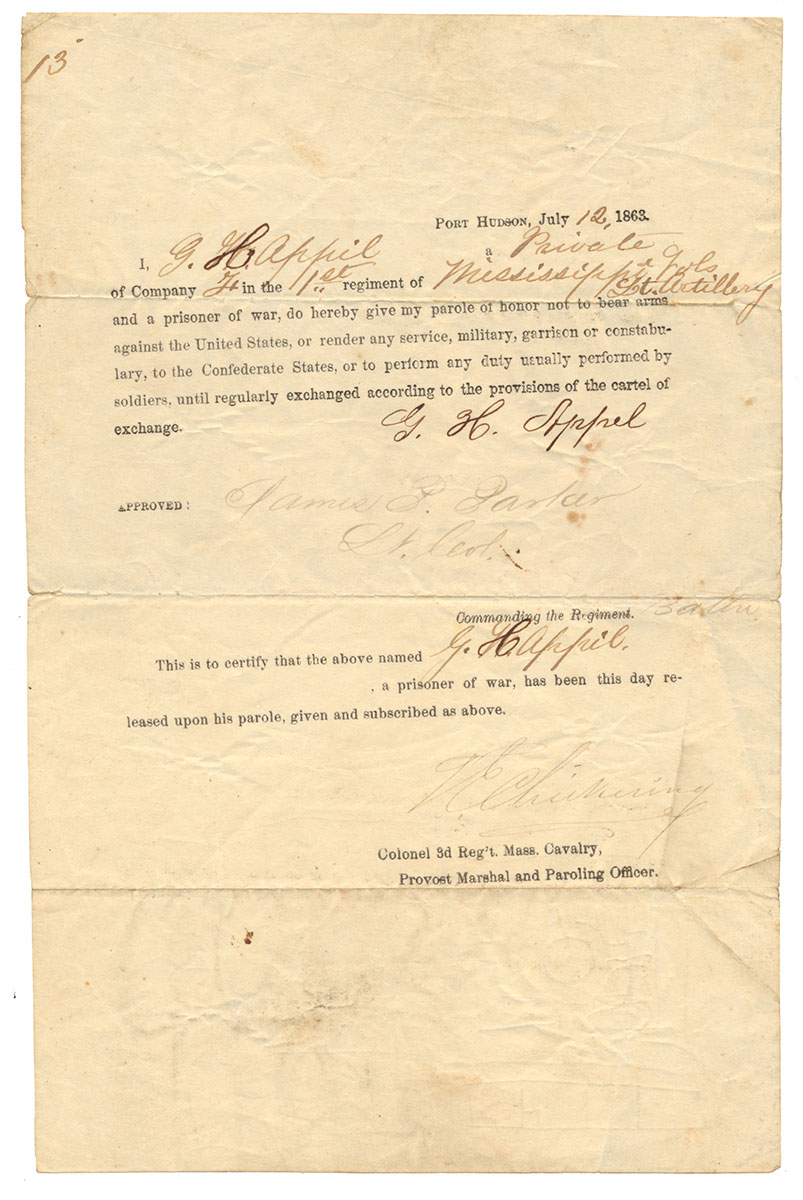 13
PORT HUDSON, July 12, 1863.
I, G. H. Appil a Private
of Company F in the 1st regiment of Mississippi Vols Lt. Artillery
and a prisoner of war, do hereby give my parole of honor not to bear arms
against the United States, or render any service, military, garrison or constabu-
lary, to the Confederate States, or to perform any duty usually performed by
soldiers, until regularly exchanged according to the provisions of the cartel of
exchange. G. H. Appel
APPROVED: James P. Parker
Lt. Col.
Commanding the Regiment.
This is to certify that the above named G. H. Appil.
, a prisoner of war, has been this day re-
leased upon his parole, given and subscribed as above.
Chickering
Colonel 3d Reg't. Mass. Cavalry,
Provost Marshal and Paroling Officer.